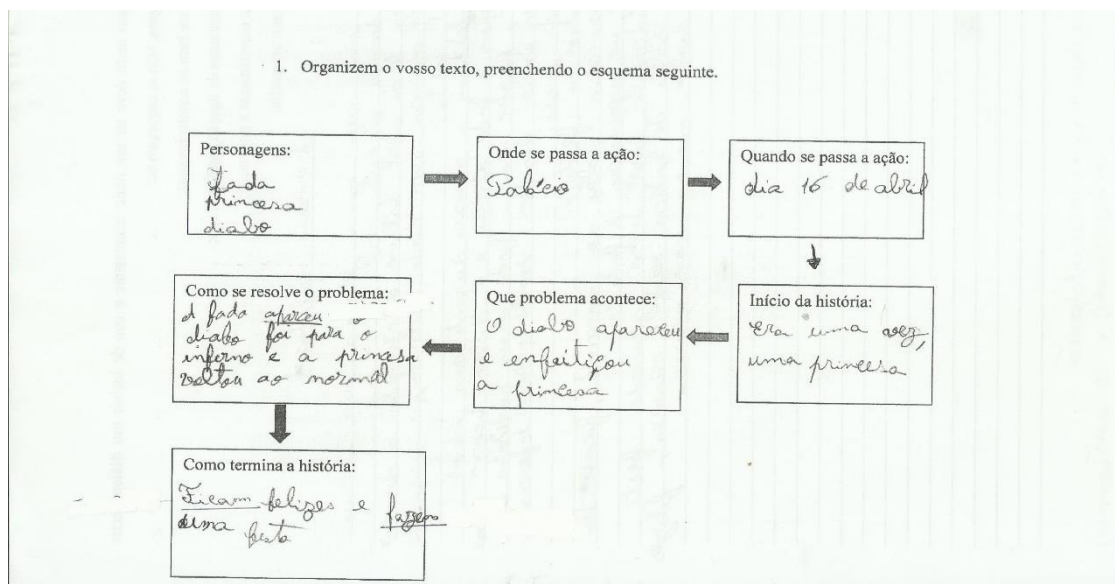 1. Organizem o vosso texto, preenchendo o esquema seguinte.
Personagens:
fada
princesa
diabo
Onde se passa a ação:
Palácio
Quando se passa a ação:
dia 16 de abril
Início da história:
Era uma vez,
uma princesa
Que problema acontece:
O diabo apareceu
e enfeitiçou
a princesa
Como se resolve o problema:
A fada apareu o
diabo foi para o
inferno e a princesa
voltou ao normal
Como termina a história:
Ficam felizes e fazem
uma festa